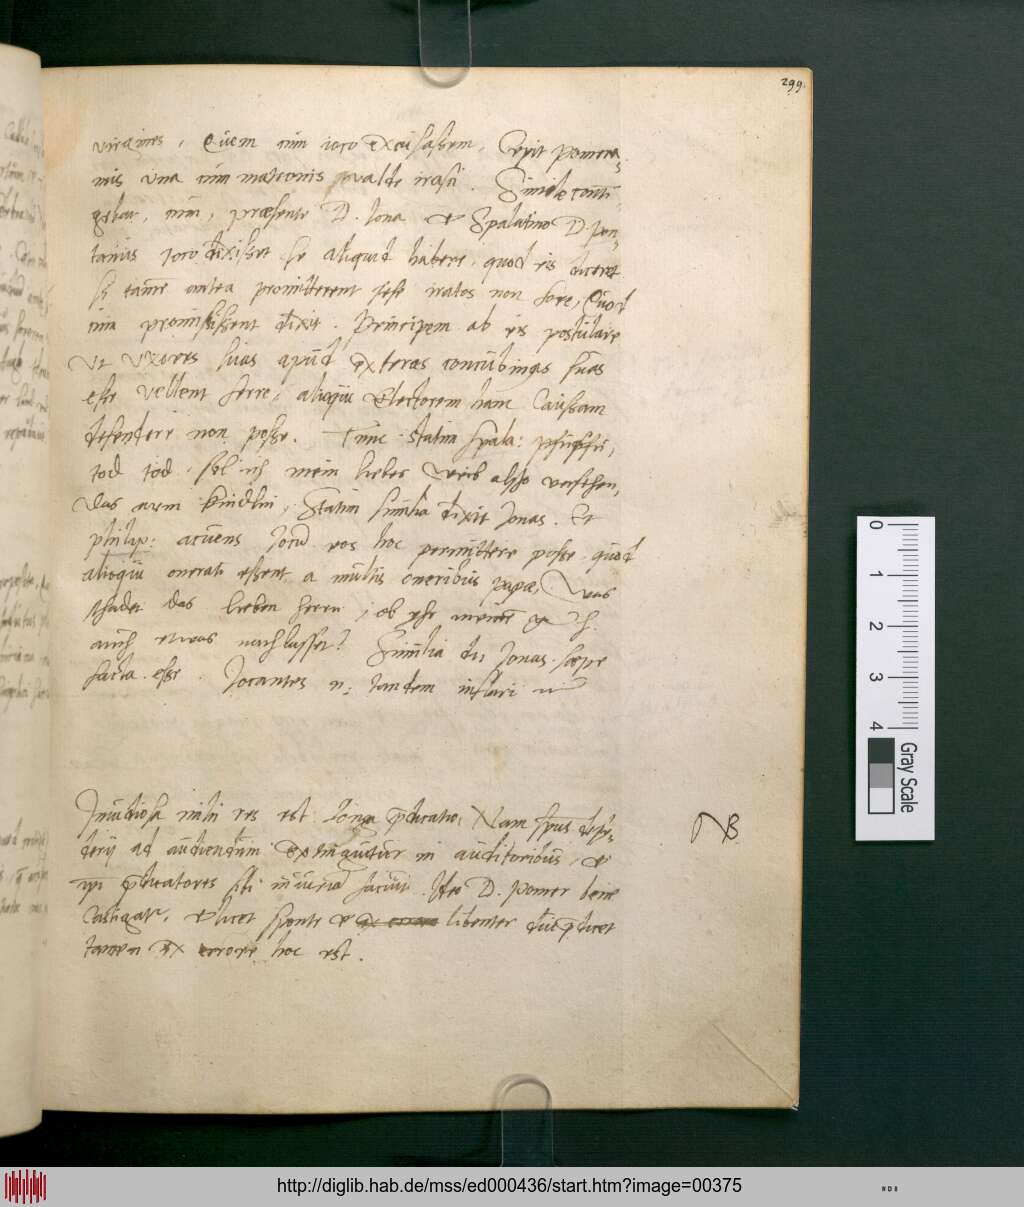 299.
virgines, Quem cum ioco excusassem, Cepit pomera,
nus una cum matronis valde irasci. Simile conti
gebat, cum, præsente D. Iona et Spalatino D. pon,
tanus ioco dixisset se aliquid habere, quod eis diceret
si tamē antea promitterent sese iratos non fore, Quod
cum promisissent dixit. Principem ab eis postulare
Ut uxores suas apud exteras concubinas suas
esse vellent ferre, alioqui Electorem hanc Caussam
defendere non posse. Tunc statim spala:
tod tod, sol ich mein liebes weib also versehen,
Das arm kindlin, Statim similia dixit Jonas. Et
philip: acuens Jocū eos hoc permittere posse quod
alioqui onerati essent a multis oneribus papæ, Was
schadet das lieben herrn, ob yhr meinē g. h.
auch etwas nachlasset? Similia du Jonas sæpe
facta esse. Jocantes n: tandem inflari
Inuidiosa mihi res est longa p̄dicatio, Nam
derij ad audiendum extinguitur in auditoribus, et
ipi p̄dicatores sibi iniuriā faciūt. Ideo D. pomer bene
Castigatr, et licet sponte et libenter diu p̄dicet
tamen ex errore hoc est.
NB.
0
1
2
3
4
Gray Scale
http://diglib.hab.de/mss/ed000436/start.htm?image=00375